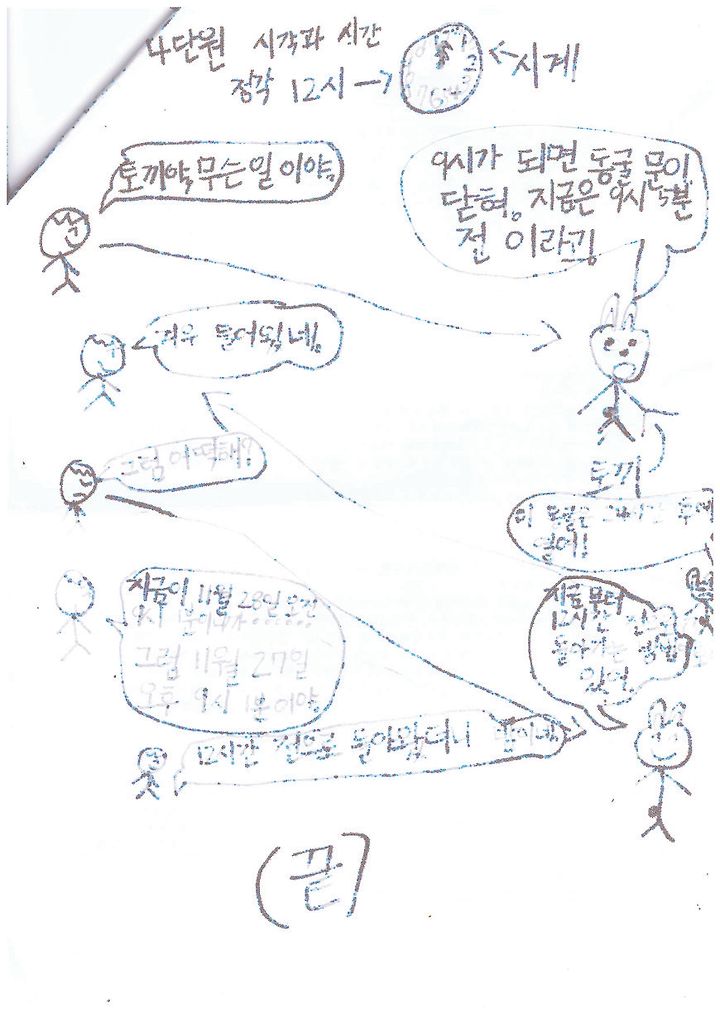 4단원 시각과 시간
정각 12시→
←시계
토끼야 무슨 일이야?
9시가 되면 동굴 문이
닫혀. 지금은 9시 5분
전 이라고!
그럼 어떡해?
토끼
열어!
지금이 11월 28일 오전
9시
그럼 11월 27일
오후 9시 1분이야
지금부터
12시간 전으로
돌아가는
12시간 전으로 돌아왔더니
(끝)